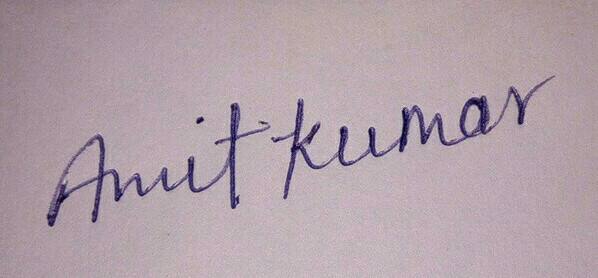 Amit kumar